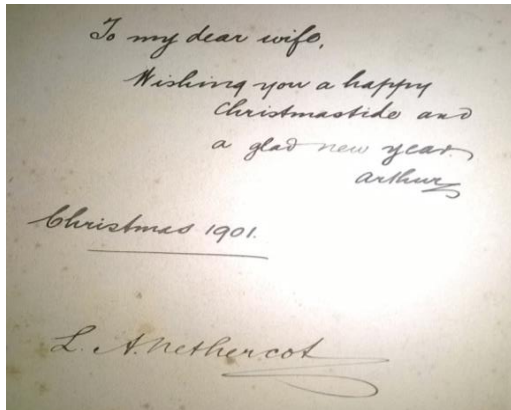 To my dear wife,
Wishing you a happy
Christmastide and
a glad new year.
Arthur
Christmas 1901.
L. A. Nethercot